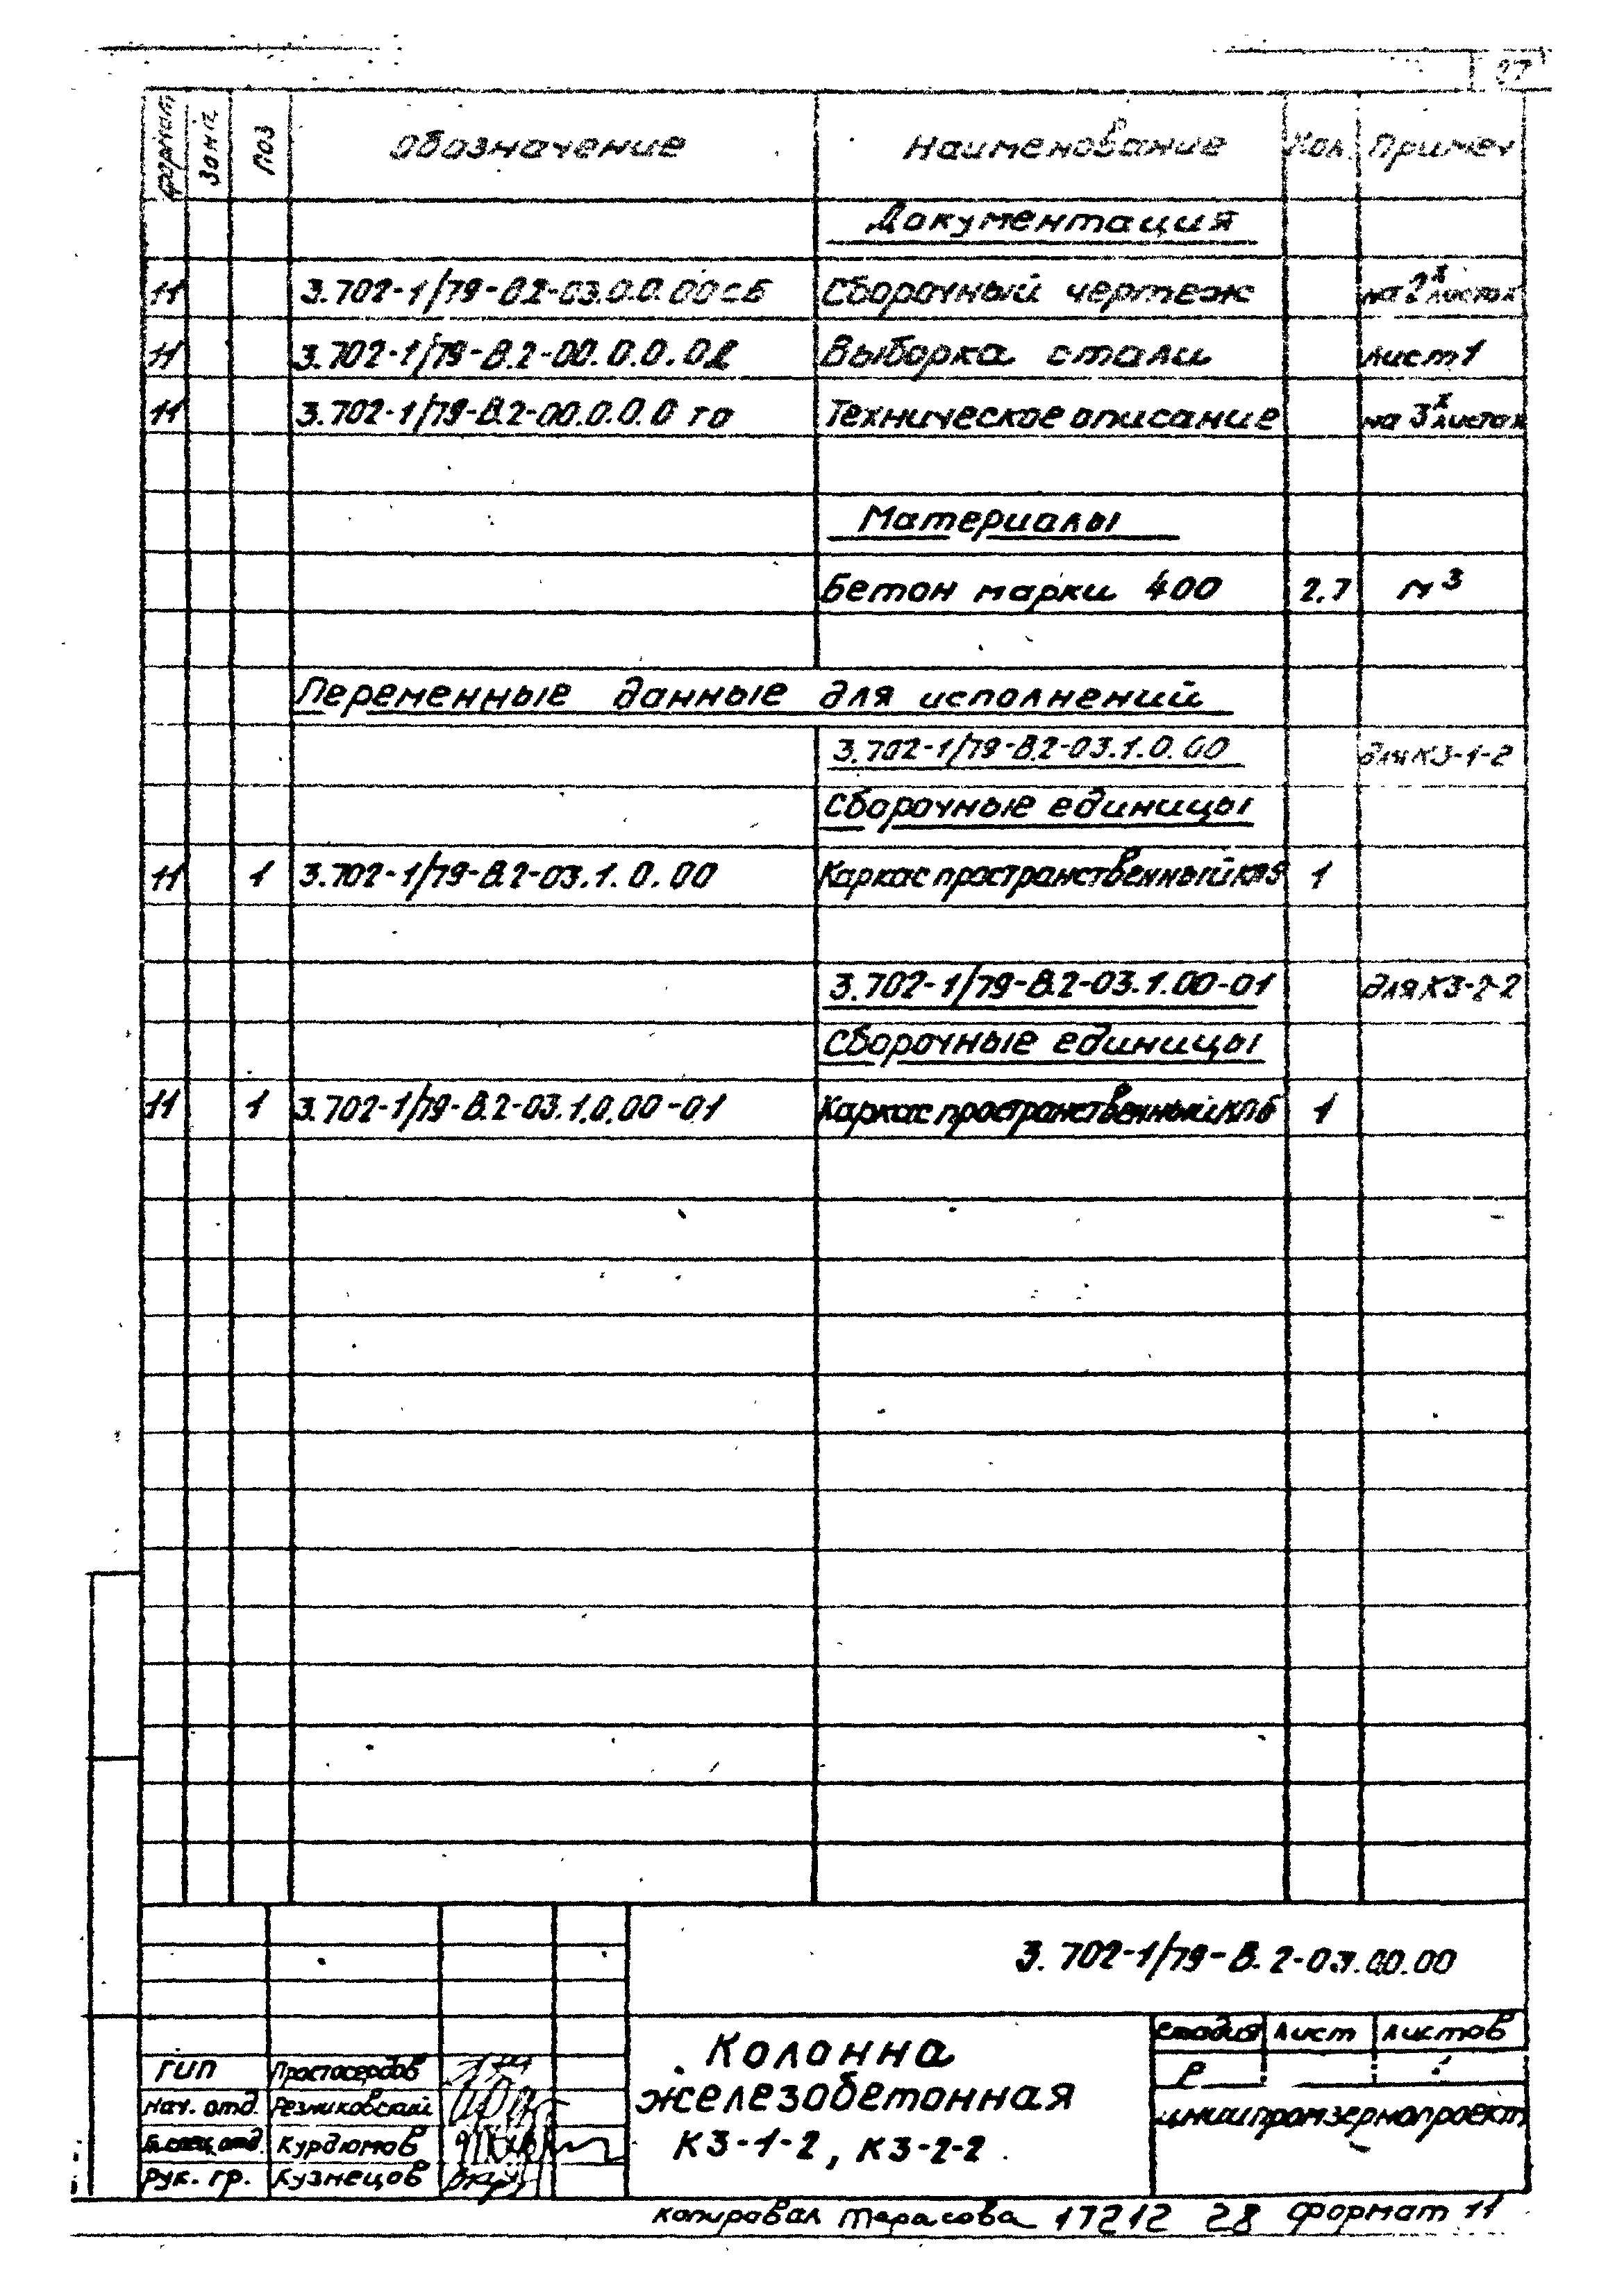 27
Формат Зона Поз Обозначение Наименование Кол. Примеч
Документация
11 3.702-1/79-В.2-03.0.0.00СБ Сборочный чертеж на 2х листах
11 3.702-1/79-В.2-00.0.0.0 Выборка стали Лист 1
11 3.702-1/79-В.2-00.0.0.0 ТО Техническое описание на 3х листах
Материалы
Бетон марки 400 2.7 м³
Переменные данные для исполнений
3.702-1/79-В.2-03.1.0.00 для К3-1-2
Сборочные единицы
11 1 3.702-1/79-В.2-03.1.0.00 Каркас пространственный КП5 1
3.702-1/79-В.2-03.1.00-01 для К3-2-2
Сборочные единицы
11 1 3.702-1/79-В.2-03.1.0.00-01 Каркас пространственный КП6 1
3.702-1/79-В.2-03.00.00
Колонна
железобетонная
К3-1-2, К3-2-2
Стадия Лист Листов
Р 1
ЦНИИпромзернопроект
ГИП Простосердов
Нач. отд. Резниковский
Гл. спец. отд. Курдюмов
Рук. гр. Кузнецов
копировал Тарасова 17212 28 формат 11